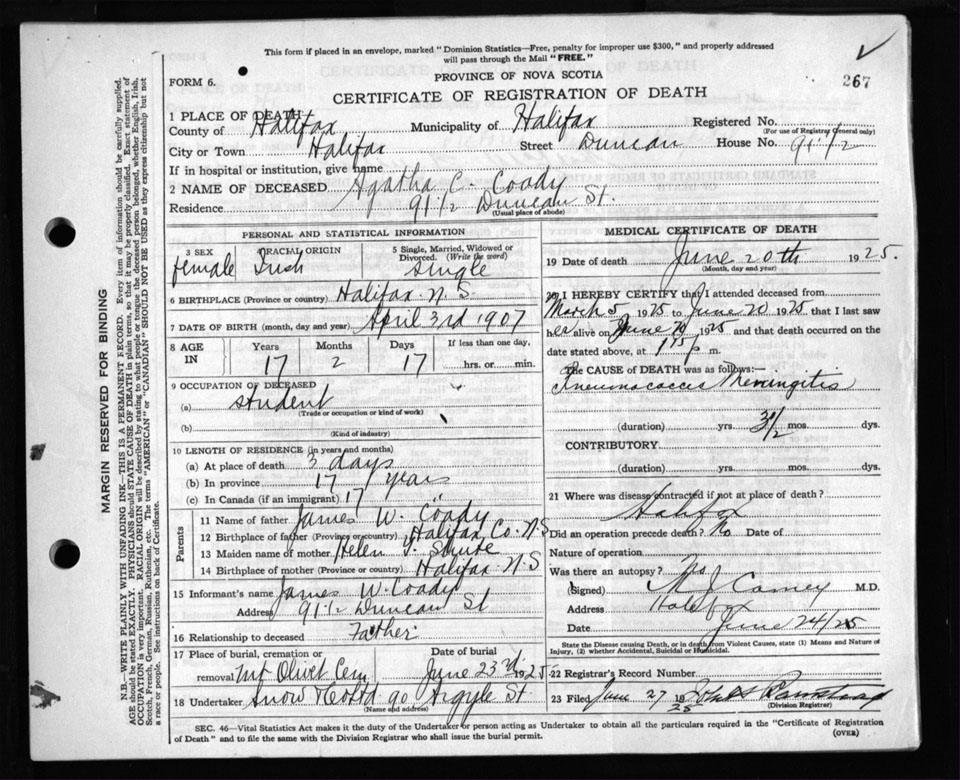 This form if placed in an envelope, marked "Dominion Statistics—Free, penalty for improper use $300," and properly addressed
will pass through the Mail "FREE."
FORM 6.
PROVINCE OF NOVA SCOTIA
267
CERTIFICATE OF REGISTRATION OF DEATH
1 PLACE OF DEATH
County of Halifax Municipality of Halifax Registered No.
(For use of Registrar General only)
City or Town Halifax Street Duncan House No. 91 1/2
If in hospital or institution, give name
2 NAME OF DECEASED Agatha C. Coady
Residence 91 1/2 Duncan St.
(Usual place of abode)
PERSONAL AND STATISTICAL INFORMATION
3 SEX female
RACIAL ORIGIN Irish
5 Single, Married, Widowed or
Divorced. (Write the word)
single
6 BIRTHPLACE (Province or country) Halifax N.S.
7 DATE OF BIRTH (month, day and year) April 3rd 1907
8 AGE IN
Years Months Days If less than one day,
17 2 17 hrs. or min.
9 OCCUPATION OF DECEASED
(a) student
(Trade or occupation or kind of work)
(b)
(Kind of industry)
10 LENGTH OF RESIDENCE (in years and months)
(a) At place of death 3 days
(b) In province 17 years
(c) In Canada (if an immigrant) 17 "
Parents
11 Name of father James W. Coady
12 Birthplace of father (Province or country) Halifax Co. N.S
13 Maiden name of mother Helen
14 Birthplace of mother (Province or country) Halifax N.S
15 Informant's name James W. Coady
Address 91 1/2 Duncan St
16 Relationship to deceased Father
17 Place of burial, cremation or Date of burial
removal Mt Olivet Cem June 23rd 1925
18 Undertaker Snow 90 Argyle St
(Name and address)
MEDICAL CERTIFICATE OF DEATH
19 Date of death June 20th 1925.
(Month, day and year)
20 I HEREBY CERTIFY that I attended deceased from
March 5 1925 to June 20 1925 that I last saw
her alive on June 20 1925 and that death occurred on the
date stated above, at p m.
The CAUSE OF DEATH was as follows:—
Pneumococcus Meningitis
(duration) yrs. 3 1/2 mos. dys.
CONTRIBUTORY
(duration) yrs. mos. dys.
21 Where was disease contracted if not at place of death?
Halifax
Did an operation precede death? No Date of
Nature of operation
Was there an autopsy? No
(Signed) M.D.
Address Halifax
Date June 24/25
State the Disease causing Death, or in death from Violent Causes, state (1) Means and Nature of
Injury, (2) whether Accidental, Suicidal or Homicidal.
22 Registrar's Record Number
23 Filed June 27 1925
(Division Registrar)
SEC. 46—Vital Statistics Act makes it the duty of the Undertaker or person acting as Undertaker to obtain all the particulars required in the "Certificate of Registration
of Death" and to file the same with the Division Registrar who shall issue the burial permit.
(OVER)
MARGIN RESERVED FOR BINDING
N.B.—WRITE PLAINLY WITH UNFADING INK—THIS IS A PERMANENT RECORD. Every item of information should be carefully supplied.
AGE should be stated EXACTLY. PHYSICIANS should STATE CAUSE OF DEATH in plain terms, so that it may be properly classified. Exact statement of
OCCUPATION is very important. RACIAL ORIGIN will be described by stating to what people or tongue the deceased person belonged, whether English, Irish,
Scotch, French, German, Russian, Ruthenian, etc. The terms "AMERICAN" or "CANADIAN" SHOULD NOT BE USED as they express citizenship but not
a race or people. See instructions on back of Certificate.